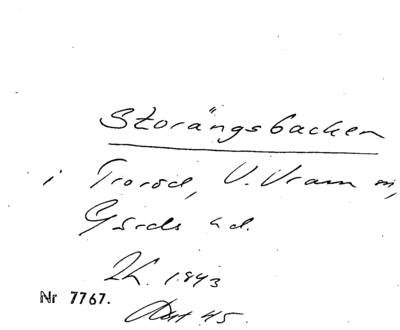 Storängsbacken
i Trorød, V. Vram m,
Gärds hd.
1843
Nr 7767.
45.